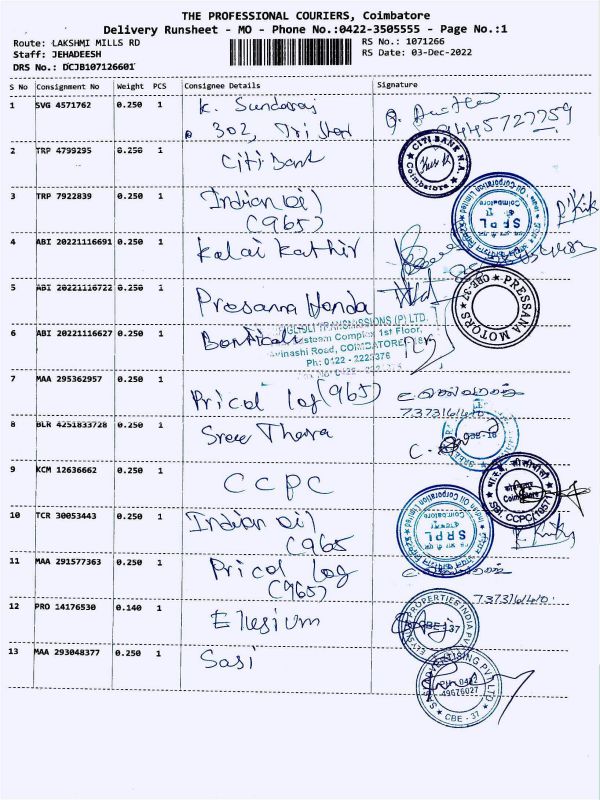 THE PROFESSIONAL COURIERS, Coimbatore
Delivery Runsheet - MO - Phone No.:0422-3505555 - Page No.:1
Route: LAKSHMI MILLS RD
RS No.: 1071266
Staff: JEHADEESH
RS Date: 03-Dec-2022
DRS No.: DCJB107126601
S No Consignment No Weight PCS Consignee Details Signature
1 SVG 4571762 0.250 1 K. Sundaraj
302, Tri Star 9445727759
2 TRP 4799295 0.250 1 Citi Bank
CITI BANK N.A.
Coimbatore
3 TRP 7922839 0.250 1 Indian Oil
(965)
Indian Oil Corporation Limited
Coimbatore
SRPL
4 ABI 20221116691 0.250 1 Kalai Kathir
5 ABI 20221116722 0.250 1 Prasanna Honda
PRESSANA MOTORS
CBE-37
6 ABI 20221116627 0.250 1
TRANSMISSIONS (P) LTD.
1st Floor,
Avinashi Road, COIMBATORE
Ph: 0422 - 2223376
7 MAA 295362957 0.250 1 Pricol Log (965)
8 BLR 4251833728 0.250 1 Sree Thara
CBE-18
9 KCM 12636662 0.250 1 CCPC
SBI, CCPC
Coimbatore
10 TCR 30053443 0.250 1 Indian Oil
(965
Indian Oil Corporation Limited
Coimbatore
SRPL
11 MAA 291577363 0.250 1 Pricol Log
(965)
12 PRO 14176530 0.140 1 Elysium
ELYSIUM PROPERTIES INDIA PVT
CBE-37
13 MAA 293048377 0.250 1 Sasi
ADVERTISING PVT LTD
PH: 0422
49676027
CBE - 37